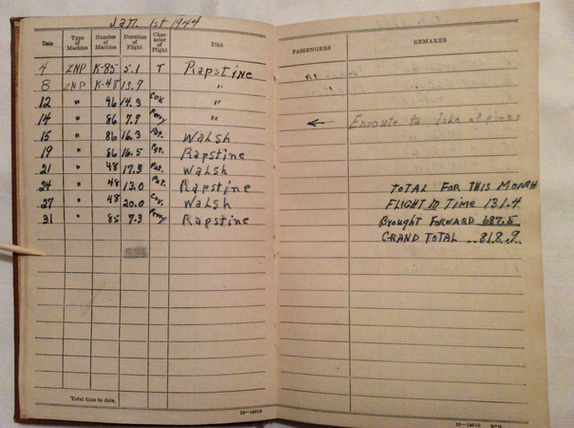 Jan. 1st 1944
Date Type of Machine Number of Machine Duration of Flight Character of Flight Pilot PASSENGERS REMARKS
4 ZNP K-85 5.1 T Rapstine
8 ZNP K-48 13.9 "
12 " 46 14.3 "
14 " 86 7.7 Ferry " ← Enroute to
15 " 86 16.3 Pat. Walsh
19 " 86 16.5 Pat. Rapstine
21 " 48 17.3 Pat. Walsh
24 " 48 13.0 Pat. Rapstine
27 " 48 20.0 Walsh
31 " 85 7.3 Ferry Rapstine
TOTAL FOR THIS MONTH
FLIGHT TIME 131.4
BROUGHT FORWARD 687.5
GRAND TOTAL ..818.9
Total time to date,